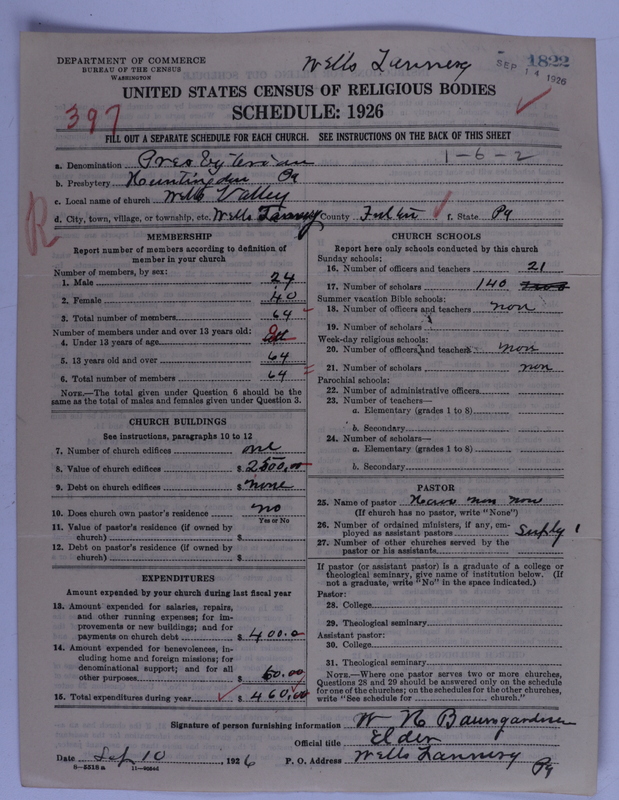 DEPARTMENT OF COMMERCE
BUREAU OF THE CENSUS
WASHINGTON
Wells Tannery
1822
SEP 14 1926
UNITED STATES CENSUS OF RELIGIOUS BODIES
SCHEDULE: 1926
397
FILL OUT A SEPARATE SCHEDULE FOR EACH CHURCH. SEE INSTRUCTIONS ON THE BACK OF THIS SHEET
1-6-2
a. Denomination Presbyterian
b. Presbytery Huntingdon Pa
c. Local name of church Wells Valley
d. City, town, village, or township, etc. Wells Tannery County Fulton f. State Pa
R
MEMBERSHIP
Report number of members according to definition of
member in your church
Number of members, by sex:
1. Male 24
2. Female 40
3. Total number of members 64
Number of members under and over 13 years old:
4. Under 13 years of age 0
5. 13 years old and over 64
6. Total number of members 64
NOTE.—The total given under Question 6 should be
same as the total of males and females given under Question 3.
CHURCH BUILDINGS
See instructions, paragraphs 10 to 12
7. Number of church edifices one
8. Value of church edifices $ 2500,00
9. Debt on church edifices $ none
10. Does church own pastor's residence no
Yes or No
11. Value of pastor's residence (if owned by
church) $
12. Debt on pastor's residence (if owned by
church) $
EXPENDITURES
Amount expended by your church during last fiscal year
13. Amount expended for salaries, repairs,
and other running expenses; for im-
provements or new buildings; and for
payments on church debt $ 400.0
14. Amount expended for benevolences, in-
cluding home and foreign missions; for
denominational support; and for all
other purposes $ 60.00
15. Total expenditures during year $ 460,00
CHURCH SCHOOLS
Report here only schools conducted by this church
Sunday schools:
16. Number of officers and teachers 21
17. Number of scholars 140
Summer vacation Bible schools:
18. Number of officers and teachers non
19. Number of scholars
Week-day religious schools:
20. Number of officers and teachers non
21. Number of scholars non
Parochial schools:
22. Number of administrative officers
23. Number of teachers—
a. Elementary (grades 1 to 8)
b. Secondary
24. Number of scholars—
a. Elementary (grades 1 to 8)
b. Secondary
PASTOR
25. Name of pastor Have non now
(If church has no pastor, write "None")
26. Number of ordained ministers, if any, em-
ployed as assistant pastors Suply 1
27. Number of other churches served by the
pastor or his assistants
If pastor (or assistant pastor) is a graduate of a college or
theological seminary, give name of institution below. (If
not a graduate, write "No" in the space indicated.)
Pastor:
28. College
29. Theological seminary
Assistant pastor:
30. College
31. Theological seminary
NOTE.—Where one pastor serves two or more churches,
Questions 28 and 29 should be answered only on the schedule
for one of the churches; on the schedules for the other churches,
write "See schedule for church."
Signature of person furnishing information W H Baumgardner
Official title Elder
Date Sep 10 1926 P. O. Address Wells Tannery Pa